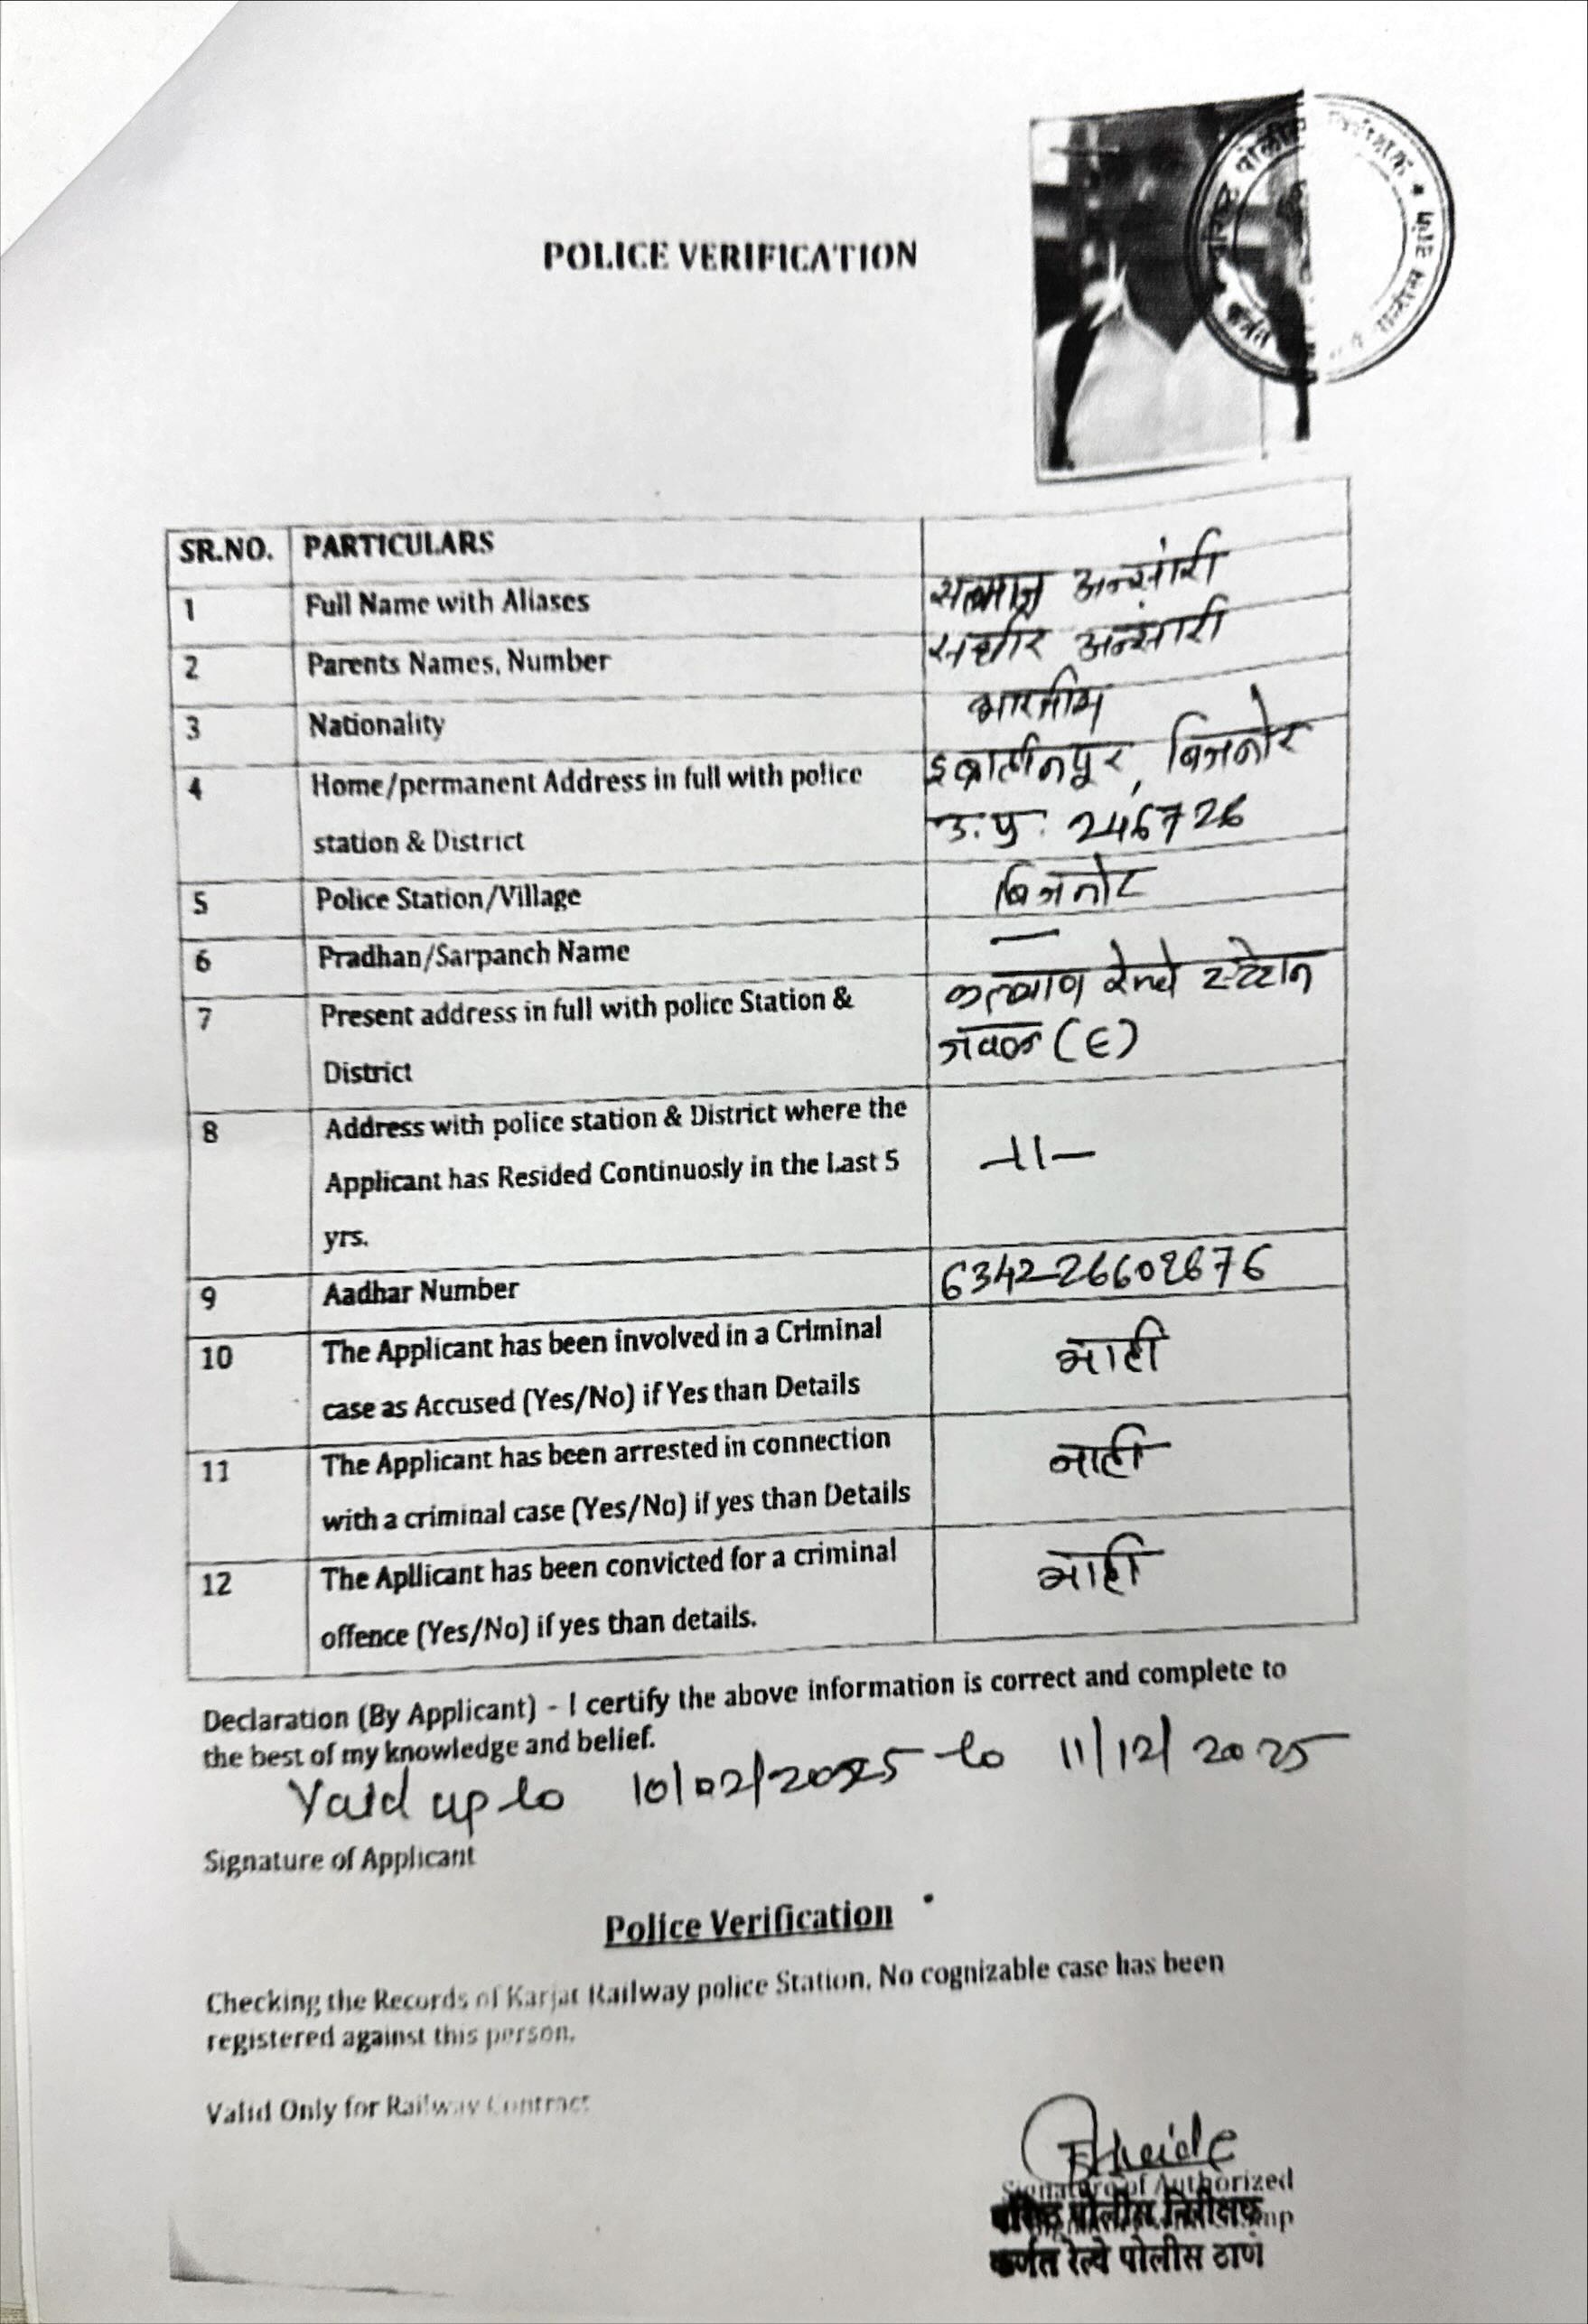 POLICE VERIFICATION
SR.NO. PARTICULARS
1 Full Name with Aliases सलमान अन्सारी
2 Parents Names, Number अन्सारी
3 Nationality भारतीय
4 Home/permanent Address in full with police station & District इब्राहीमपूर, बिजनोर
उ.प्र. 246726
5 Police Station/Village बिजनोर
6 Pradhan/Sarpanch Name —
7 Present address in full with police Station & District कल्याण रेल्वे स्टेशन
जवळ (E)
8 Address with police station & District where the
Applicant has Resided Continuosly in the Last 5 -11-
yrs.
9 Aadhar Number 6342-26602876
10 The Applicant has been involved in a Criminal
case as Accused (Yes/No) if Yes than Details नाही
11 The Applicant has been arrested in connection
with a criminal case (Yes/No) if yes than Details नाही
12 The Apllicant has been convicted for a criminal
offence (Yes/No) if yes than details. नाही
Declaration (By Applicant) - I certify the above information is correct and complete to
the best of my knowledge and belief.
Valid up to 10/02/2025 to 11/12/2025
Signature of Applicant
Police Verification
Checking the Records of Karjat Railway police Station, No cognizable case has been
registered against this person.
Valid Only for Railway Contract
Signature of Authorized
वरिष्ठ पोलीस निरीक्षक
कर्जत रेल्वे पोलीस ठाणे